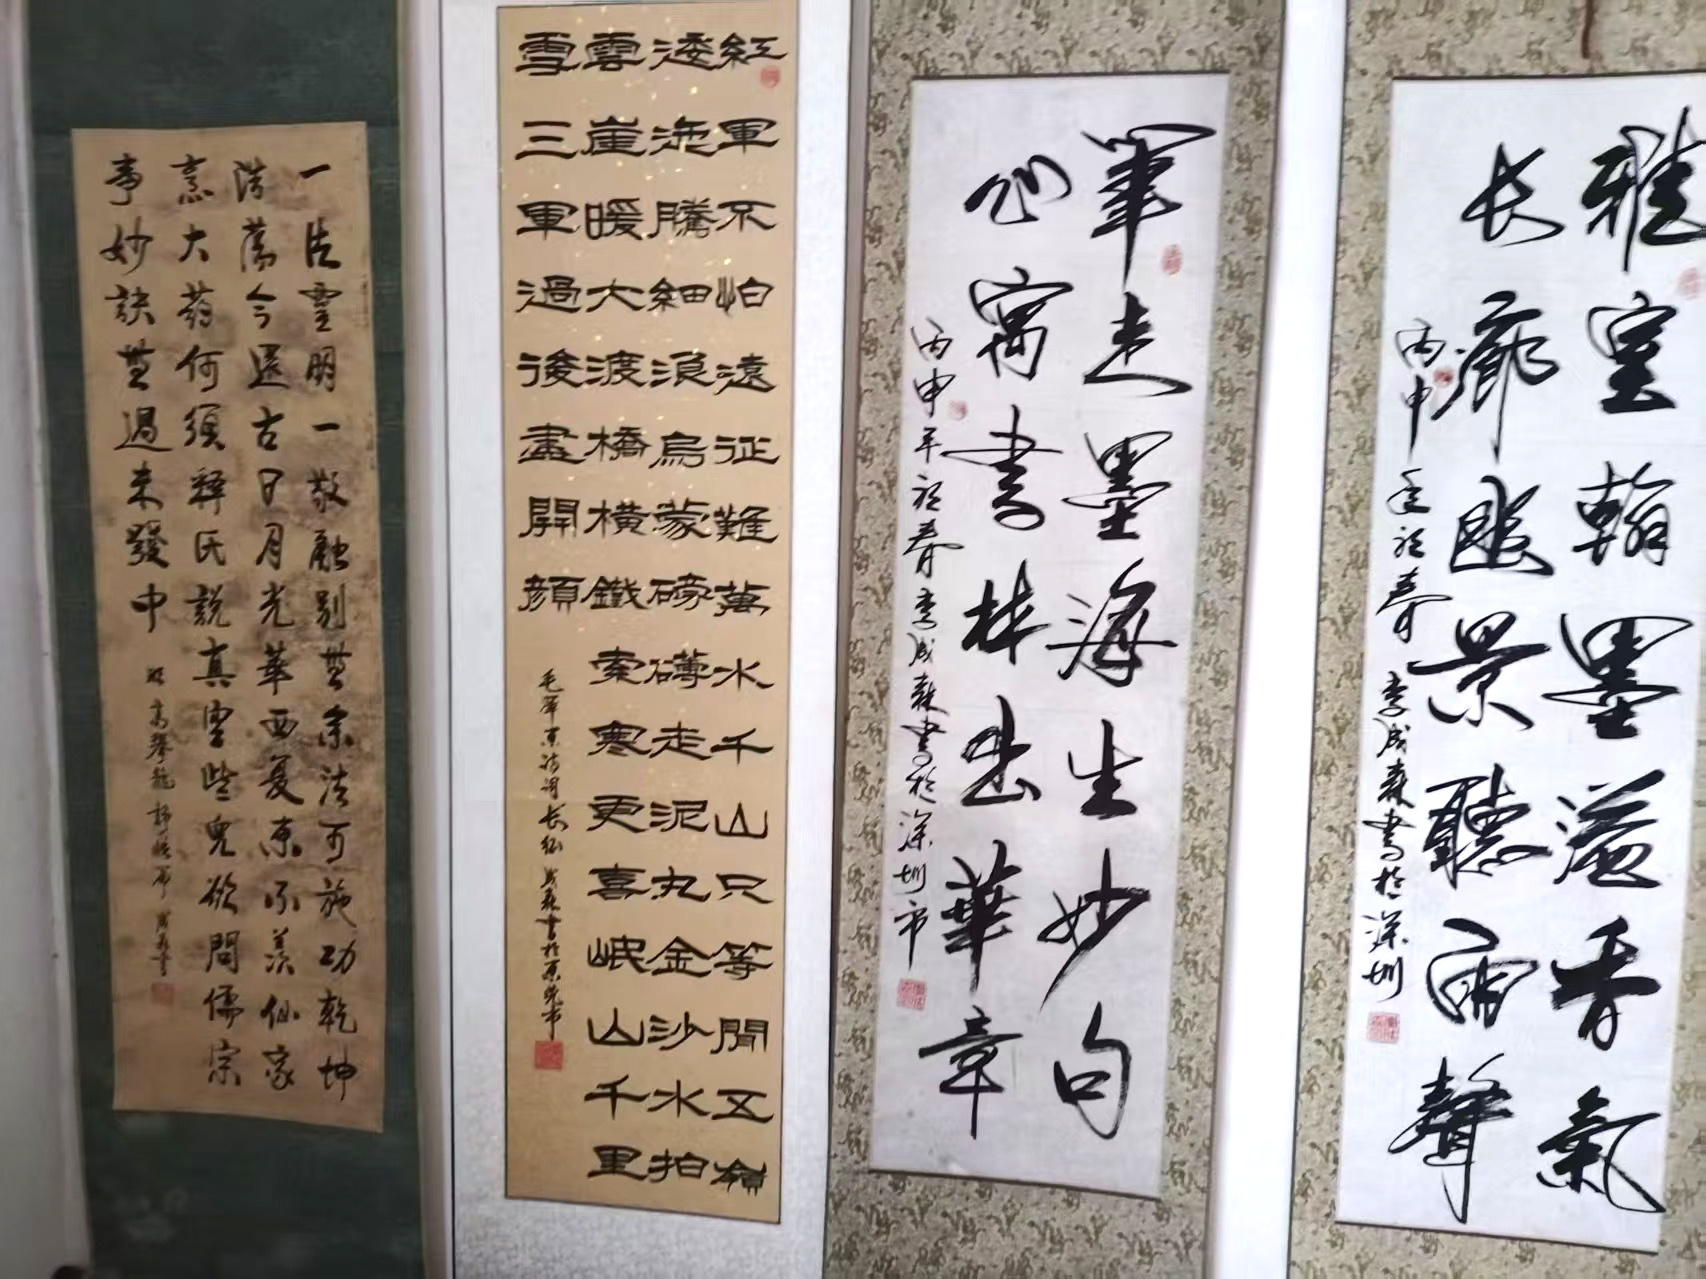 雅室翰墨溢香氣
长廊幽景聽雨聲
丙申年初春李成森書於深圳
筆走墨海生妙句
心寓書林出華章
丙申年初春李成森書於深圳市
紅軍不怕遠征難萬水千山只等閒五嶺
逶迤騰細浪烏蒙磅礡走泥丸金沙水拍
雲崖暖大渡橋橫鐵索寒更喜岷山千里
雪三軍過後盡開顏
毛澤東詩词长征成森書於东莞市
一点靈明一敬融别無余法可施功乾坤
浩蕩今還古日月光華西复東不羡仙家
烹大药何須釋氏說真空些兒欲問儒宗
事妙訣無過未發中
明高攀龍 成森書